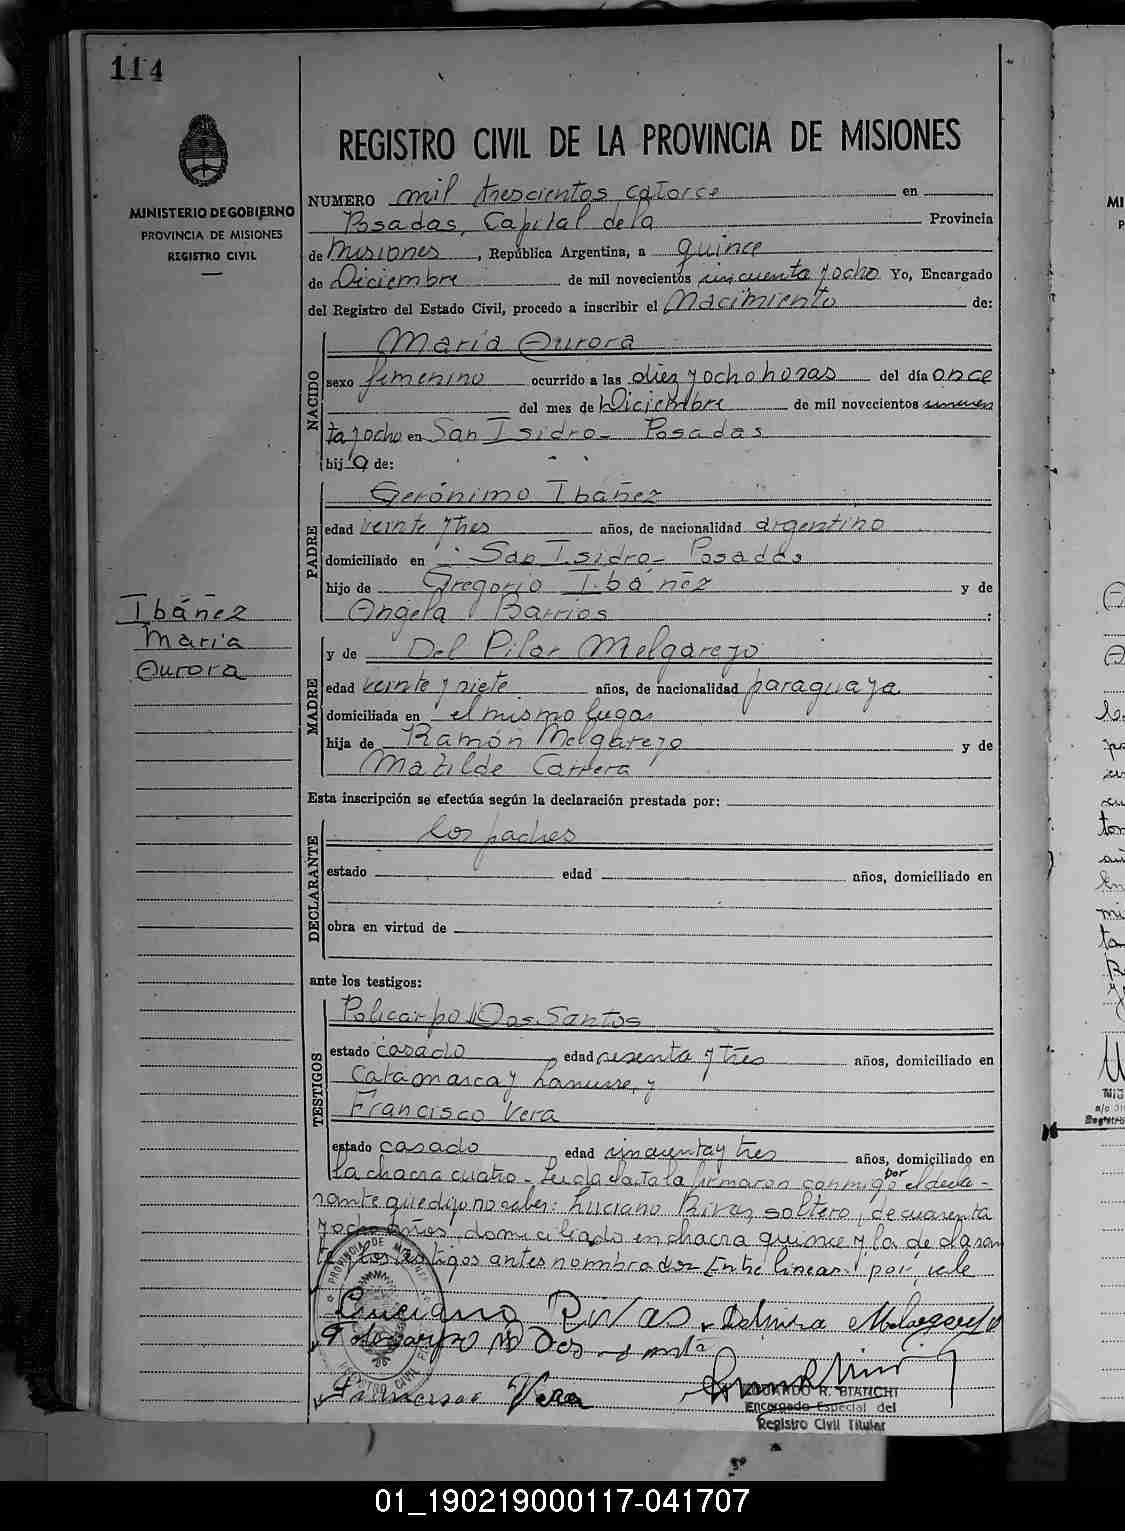 114
MINISTERIO DE GOBIERNO
PROVINCIA DE MISIONES
REGISTRO CIVIL
Ibáñez
María
Aurora
REGISTRO CIVIL DE LA PROVINCIA DE MISIONES
NUMERO mil trescientos catorce en
Posadas, Capital de la Provincia
de Misiones, República Argentina, a quince
de Diciembre de mil novecientos cincuenta y ocho Yo, Encargado
del Registro del Estado Civil, procedo a inscribir el Nacimiento de:
NACIDO
María Aurora
sexo femenino ocurrido a las diez y ocho horas del día once
del mes de Diciembre de mil novecientos cincuen
ta y ocho en San Isidro - Posadas
hija de:
PADRE
Gerónimo Ibáñez
edad veinte y tres años, de nacionalidad argentino
domiciliado en San Isidro - Posadas
hijo de Gregorio Ibáñez y de
Angela Barrios :
MADRE
y de Del Pilar Melgarejo
edad veinte y siete años, de nacionalidad paraguaya
domiciliada en el mismo lugar
hija de Ramón Melgarejo y de
Matilde Carrera
Esta inscripción se efectúa según la declaración prestada por:
DECLARANTE
los padres
estado edad años, domiciliado en
obra en virtud de
ante los testigos:
TESTIGOS
Policarpo Dos Santos
estado casado edad sesenta y tres años, domiciliado en
Catamarca y Lanusse, y
Francisco Vera
estado casado edad cincuenta y tres años, domiciliado en
la chacra cuatro - Leída el acta la firmaron conmigo por el decla-
rante que dijo no saber: Luciano Rivas, soltero, de cuarenta
y ocho años, domiciliado en chacra quince y la declaran
te y los testigos antes nombrados - Entre líneas: por, vale
Luciano Rivas Melgarejo
Dos
Francisco Vera
EDUARDO R. BIANCHI
Encargado Especial del
Registro Civil Titular
01_190219000117-041707